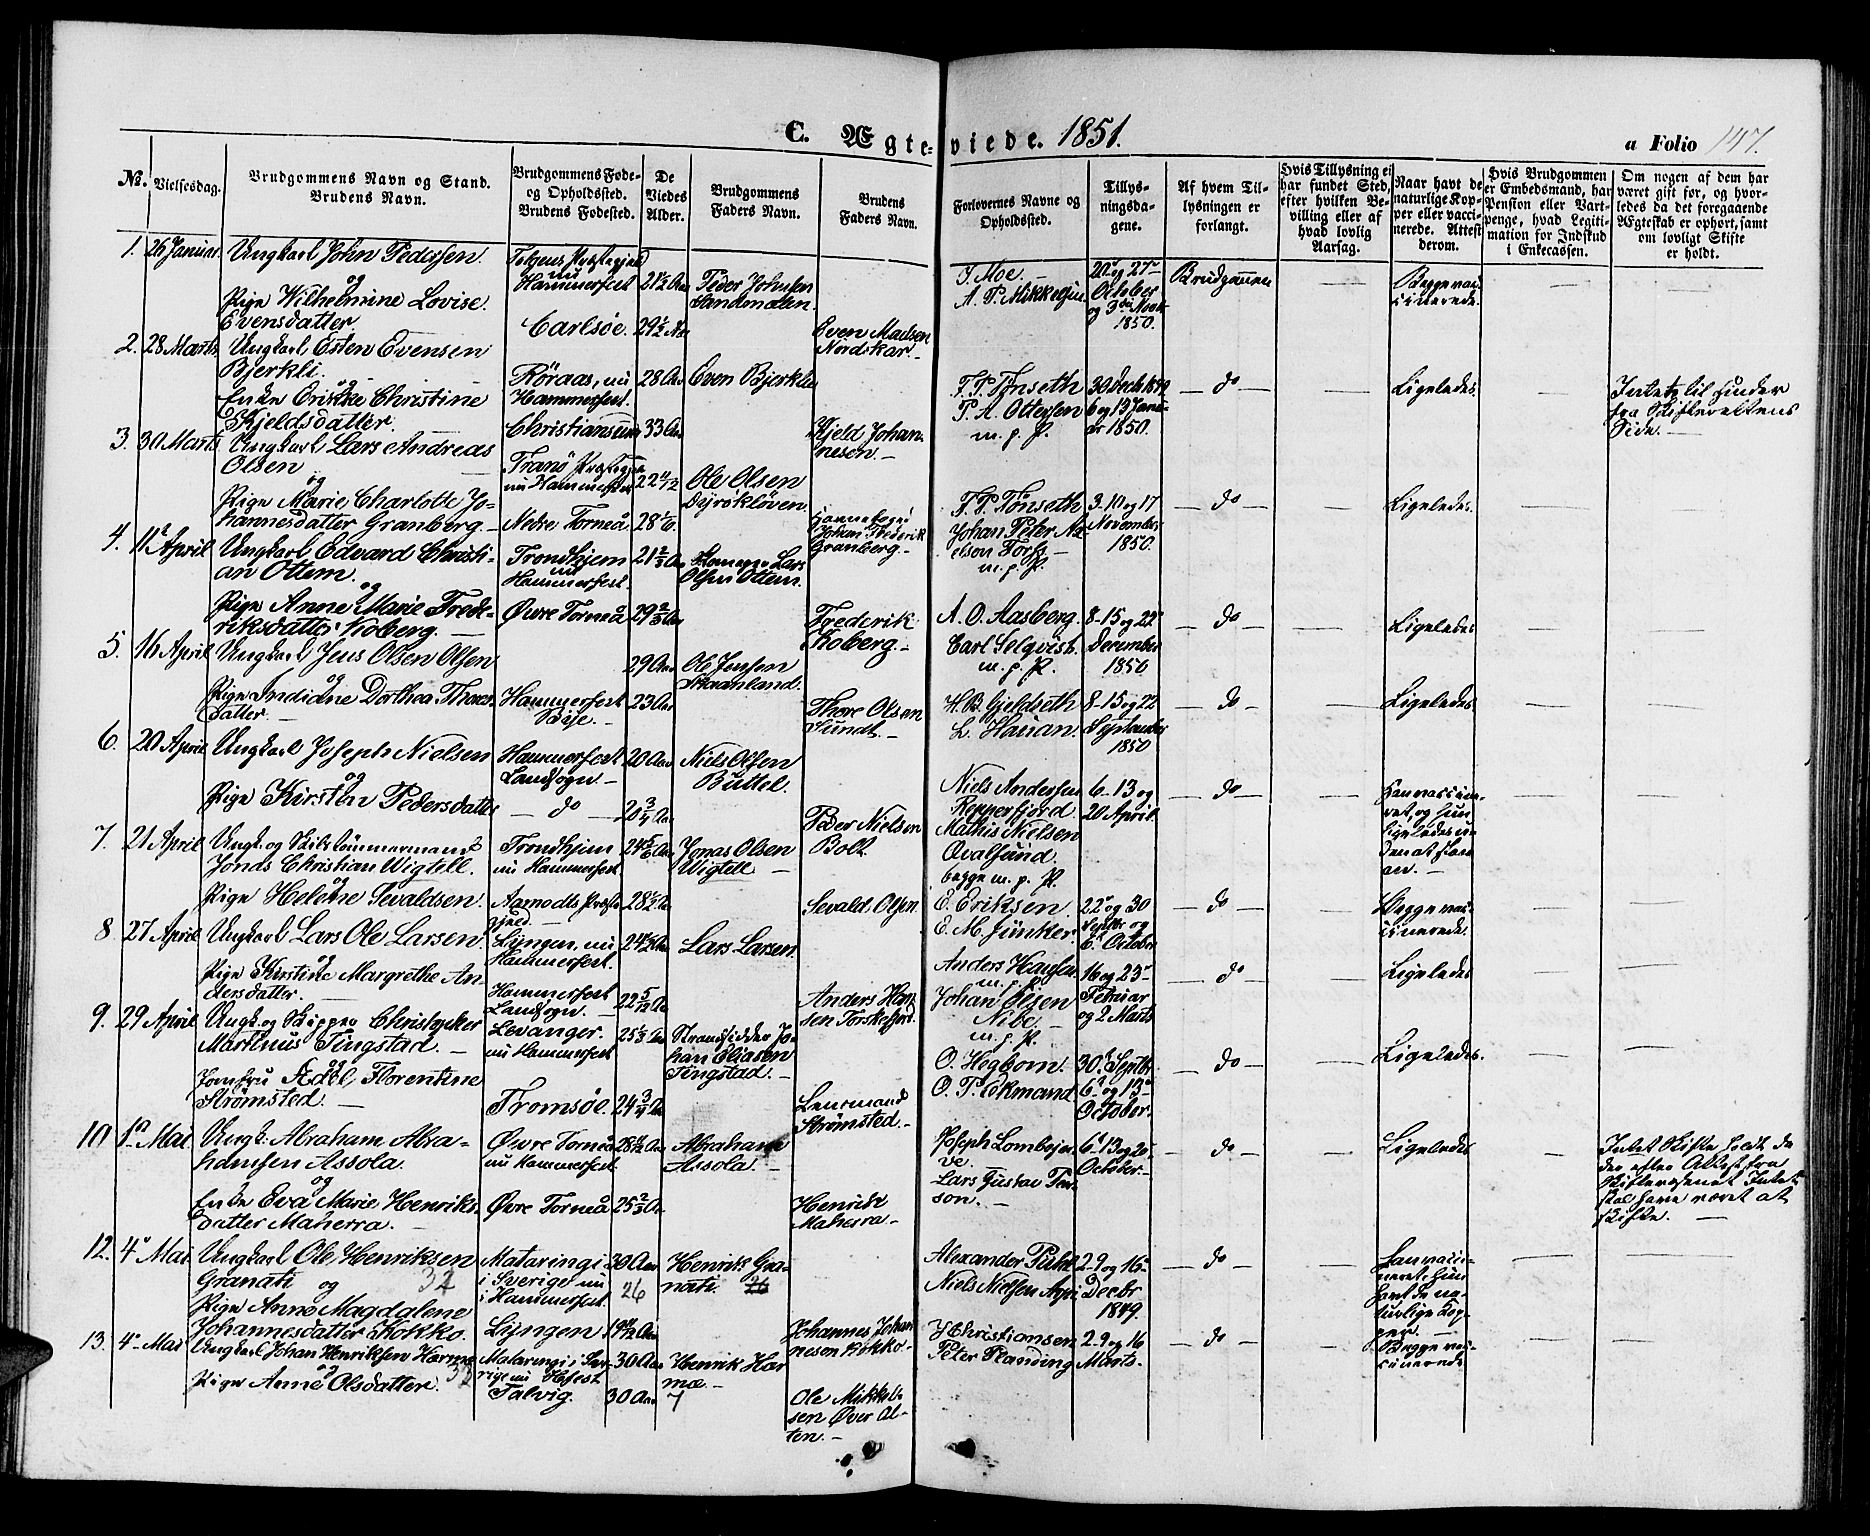 C. Ægteviede. 1851.
a Folio 147.
No. Vielsesdag. Brudgommens Navn og Stand. Brudens Navn. Brudgommens Føde- og Opholdssted. Brudens Fødested. De Viedes Alder. Brudgommens Faders Navn. Brudens Faders Navn.
Forlovernes Navne og Opholdssted. Tillysningsdagene. Af hvem Tillysningen er forlangt. Hvis Tillysning ei har fundet Sted, efter hvilken Bevilling eller af hvad lovlig Aarsag. Naar havt de naturlige Kopper eller vaccinerede. Attest derom. Hvis Brudgommen er Embedsmand, har Pension eller Vartpenge, hvad Legitimation for Indskud i Enkecassen. Om nogen af dem har været gift før, og hvorledes da det foregaaende Ægteskab er ophørt, samt om lovligt Skifte er holdt.
1. 26 Januar. Ungkarl John Pedersen. nu Hammerfest 21½ Aar Peder Johnsen
og
Pige Wilhelmine Lovise Evensdatter. Carlsöe. 29½ Aar Even Madsen Nordskar
J. Moe. A. P. Mikkelsen 20 og 27 October og 3die Novb 1850. Brudgommen Begge vaccinerede.
2. 28 Marts Ungkarl Esten Evensen Bjerkli. Röraas, nu Hammerfest. 28 Aar Even Bjerkli
og
Enke Christine Kjeldsdatter. Christiansund 33 Aar Kjeld Johannesen.
F. P. Tönseth P. A. Ottersen m. p. P. 30 Decb 1849 6 og 13 Januar 1850. do Ligeledes Intet til Hinder fra Skifterettens Side.
3. 30 Marts Ungkarl Lars Andreas Olsen Tranö Præstegjeld nu Hammerfest 22 Ole Olsen Dyröklöven.
og
Pige Marie Charlotte Johannesdatter Granberg. Nedre Torneå 28 Johan Frederik Granberg.
F. P. Tönseth Johan Peter m. p. P. 3. 10 og 17 November 1850. do Ligeledes.
4. 11 April Ungkarl Edvard Christian Ottem. Trondhjem nu Hammerfest. 21⅔ Aar Lars Olsen Ottem.
og
Pige Anne Marie Frederiksdatter Koberg. Övre Torneå 29⅔ Aar Frederik Koberg.
A. O. Aasberg. Carl Selqvist. m. p. P. 8-15 og 22 December 1850 do Ligeledes
5. 16 April Ungkarl Jens Olsen Olsen 29 Aar Ole Jensen
og
Pige Indiane Dorthea Thoresdatter. Hammerfest Bye. 23 Aar Thore Olsen Sundt.
H. B. Gjeldseth L. Hasian. 8-15 og 22 September 1850 do Ligeledes
6. 20 April Ungkarl Joseph Nielsen Hammerfest Landsogn 20 Aar Niels Olsen Büttel.
og
Pige Kirsten Pedersdatter do 20¾ Aar Peder Nielsen Bolt
Niels Andersen Repperfjord Mathis Nielsen Qvalsund. begge m. p. P. 6-13 og 20 April. do
7. 21 April Ungk. og Skibstömmermand Jonas Christian Wigtell. Trondhjem nu Hammerfest 24⅚ Aar Jonas Olsen Wigtell
og
Pige Helene Sevaldsen. Aarnodts Præstegjeld. 28½ Aar Sevald Olsen
E. Eriksen E. M. Jünker. 22 og 30 Septbr og 6 October do Begge vaccinerede.
8. 27 April Ungkarl Lars Ole Larsen. Lyngen, nu Hammerfest. 24 Aar Lars Larsen
og
Pige Kirstine Margrethe Andersdatter. Hammerfest Landsogn. 22 5/12 Aar Anders Hansen Torskefjord.
Anders m. p. P. Johan Olsen Nibe m. p. P. 16 og 23 Februar og 2 Marts do Ligeledes
9. 29 April Ungk. og Skipper Christopher Martinus Tingstad. Levanger. nu Hammerfest 25 Aar Strandsidder Johan Eliasen Tingstad.
og
Jomfru Adel Florentine Strömsted. Tromsöe. 24¾ Aar Lensmand Strömsted.
O. Hegbom. O. P. Eckmand 30 Septbr. 6 og 13 October. do Ligeledes.
10 1 Mai Ungk. Abraham Abrahamsen Assola. Övre Torneå nu Hammerfest. 28 Aar Abraham Assola
og
Enke Eva Marie Henriksdatter Maherra. Övre Torneå 25⅔ Aar Henrik Maherra
Joseph Lars Gustav 6 13 og 20 October. do Ligeledes Intet Skifte holdt da der efter Attest fra Skifteretten Intet skal have været at skifte.
12. 4 Mai Ungkarl Ole Henriksen Granati 32 Mataringi i Sverige nu i Hammerfest. 30 Aar 26 Henrik Granati. 26
og
Pige Anne Magdalene Johannesdatter Kokko. Lyngen 19 Aar Johannes Johannesen Kokko
Alexander Niels Nielsen 2. 9 og 16 Decbr 1849. do Han vaccineret, hun havt de naturlige Kopper.
13. 4 Mai Ungkarl Johan Henriksen Harme 32 Mataringi i Sverige nu Hfest 30 Aar Henrik Harmæ
og
Pige Anne Olsdatter. Talvig. 30 Aar 7 Ole Mikkelsen Över Alten.
J Christiansen Peter 2. 9 og 16 Marts. do Begge vaccinerede